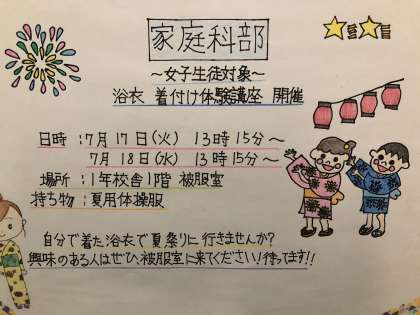 家庭科部
~女子生徒対象~
浴衣 着付け体験講座 開催
日時:7月17日(火) 13時15分~
7月18日(水) 13時15分~
場所:1年校舎1階 被服室
持ち物:夏用体操服
自分で着た浴衣で夏祭りに行きませんか?
興味のある人はぜひ、被服室に来てください!待ってます!!